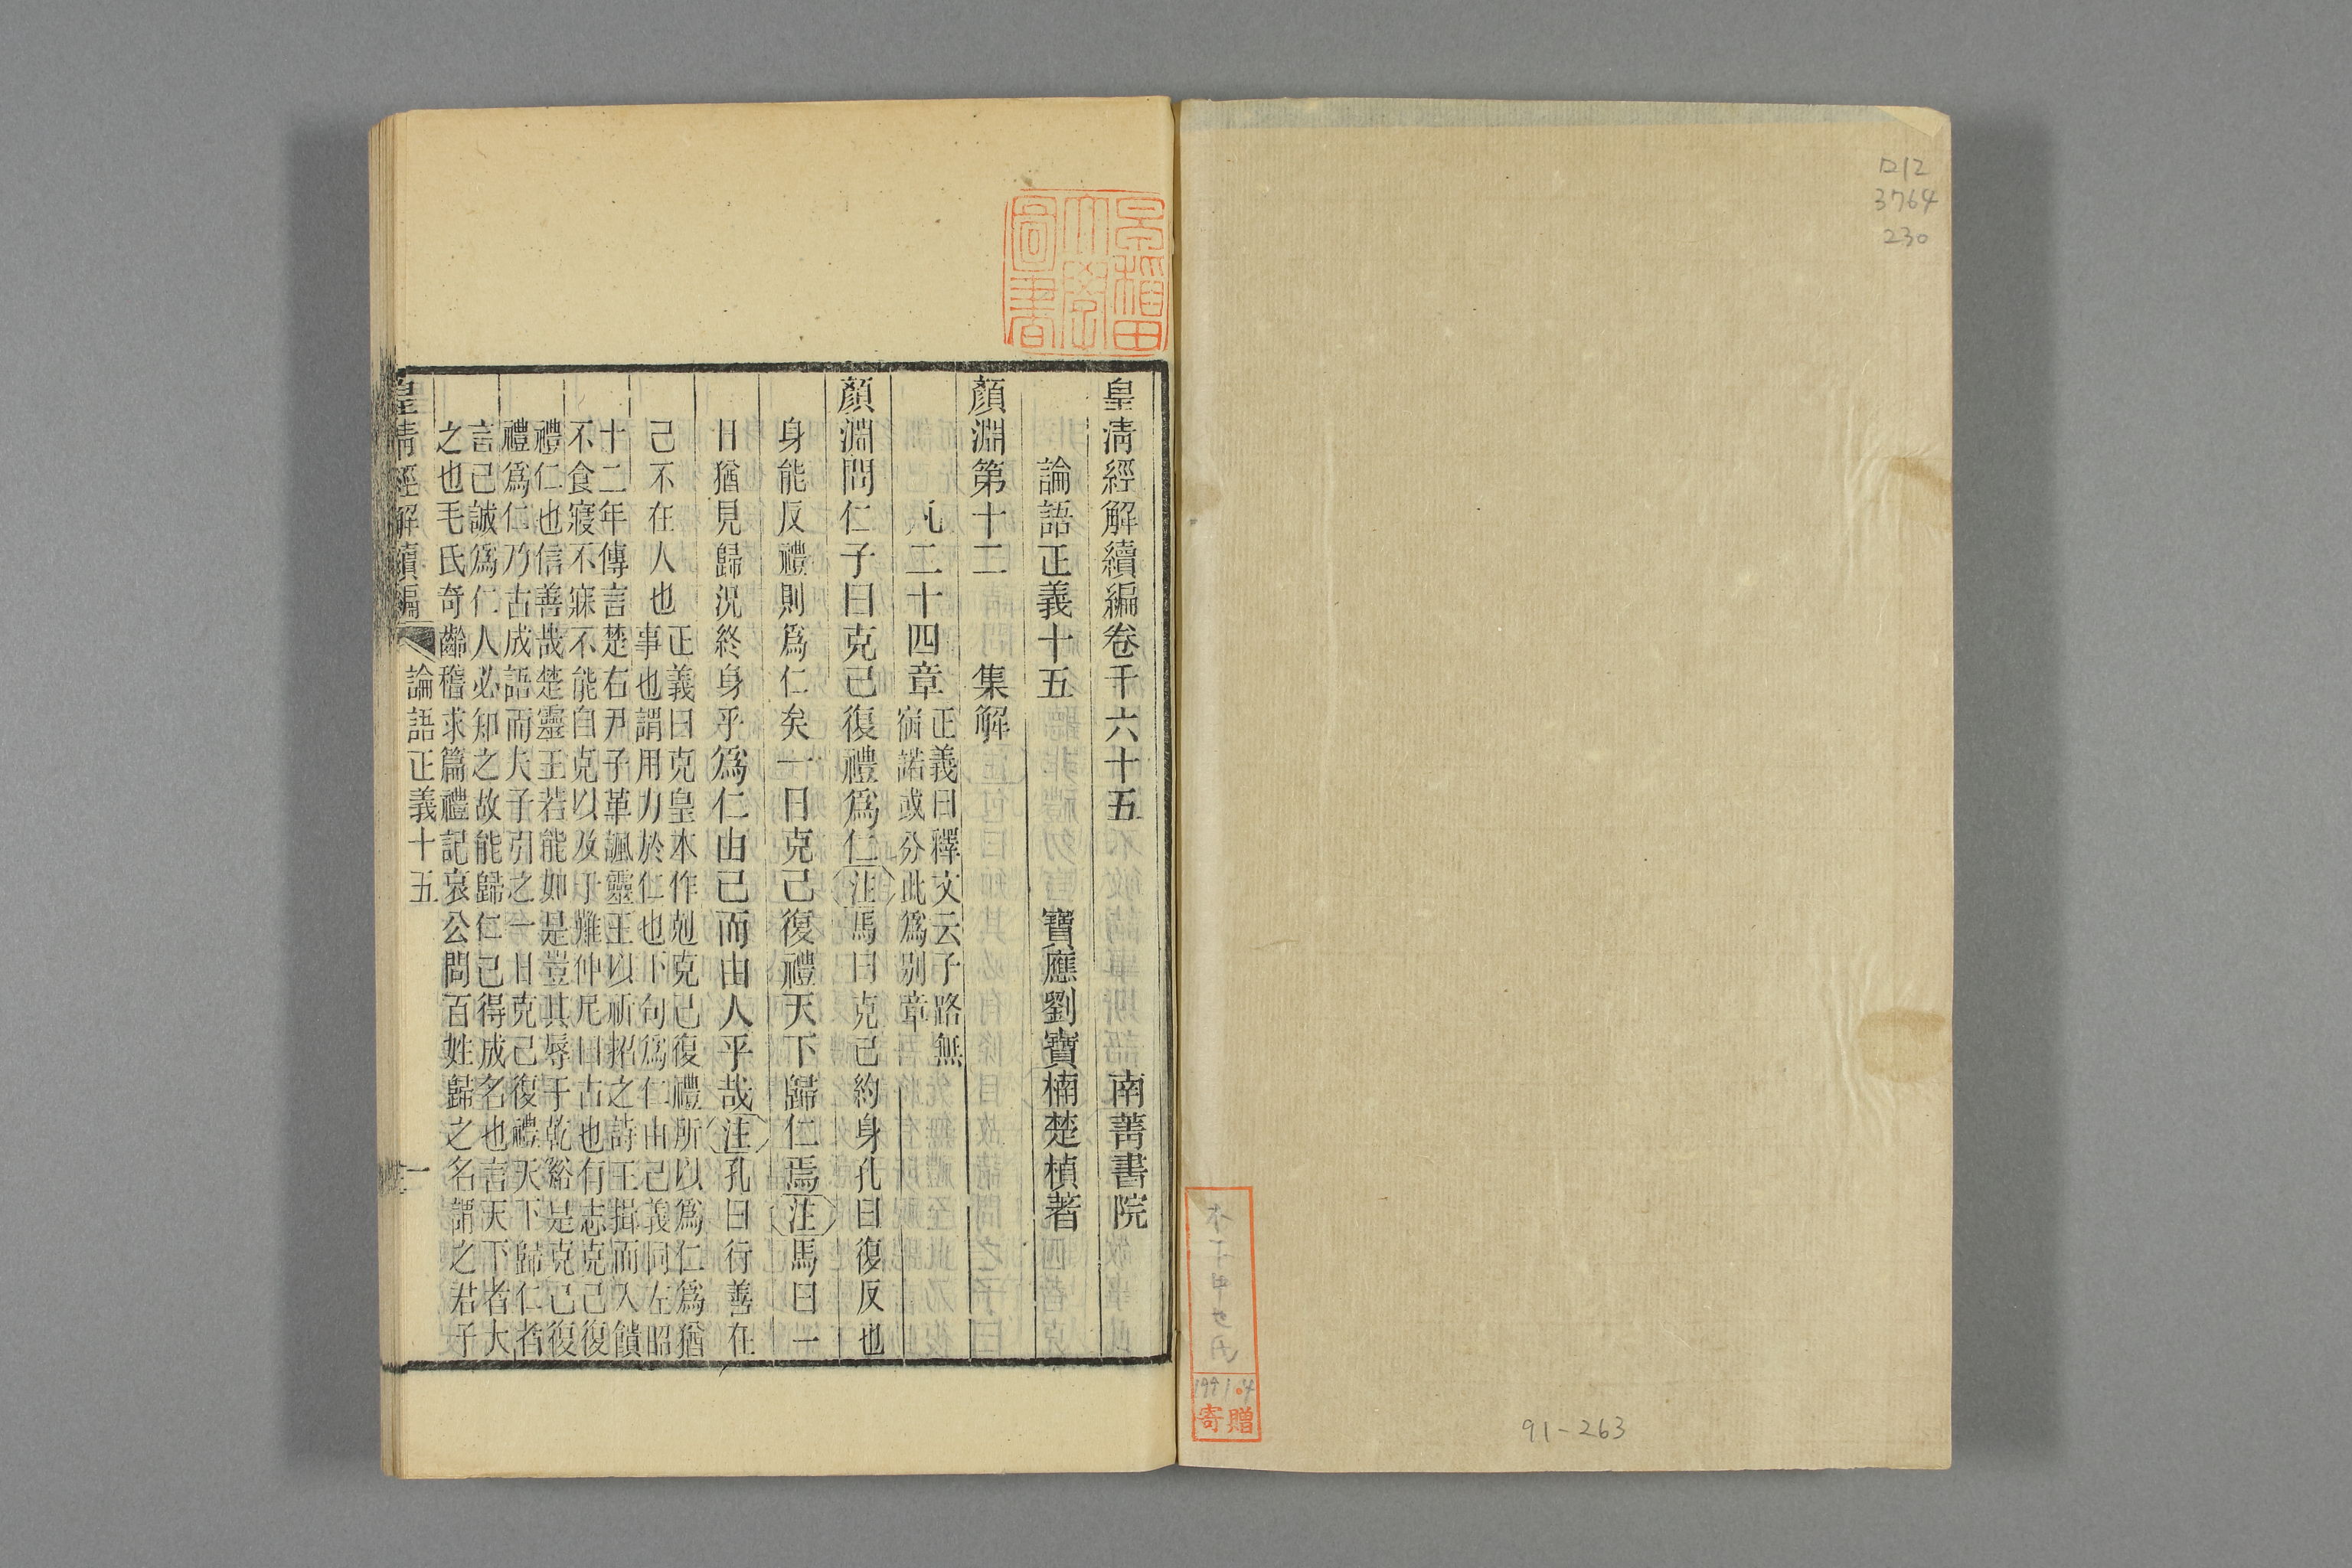 ロ12
3764
230
早稲田
大學
圖書
皇清經解續編卷千六十五　南菁書院
論語正義十五　寶應劉寶楠楚楨著
顏淵第十二　集解
凡二十四章
正義曰釋文云子路無
宿諾或分此爲別章
顏淵問仁子曰克己復禮爲仁注馬曰克己約身孔曰復反也
身能反禮則爲仁矣一日克己復禮天下歸仁焉注馬曰一
日猶見歸況終身乎爲仁由己而由人乎哉注孔曰行善在
己不在人也
正義曰克皇本作剋克己復禮所以爲仁爲猶
事也謂用力於仁也下句爲仁由己義同左昭
十二年傳言楚右尹子革諷靈王以祈招之詩王揖而入饋
不食寢不寐不能自克以及于難仲尼曰古也有志克己復
禮仁也信善哉楚靈王若能如是豈其辱于乾谿是克己復
禮爲仁乃古成語而夫子引之一日克己復禮天下歸仁者
言己誠爲仁人必知之故能歸仁己得成名也言天下者大
之也毛氏奇齡稽求篇禮記哀公問百姓歸之名謂之君子
皇清經解續編　論語正義十五　一
1991.4
寄贈
91-263